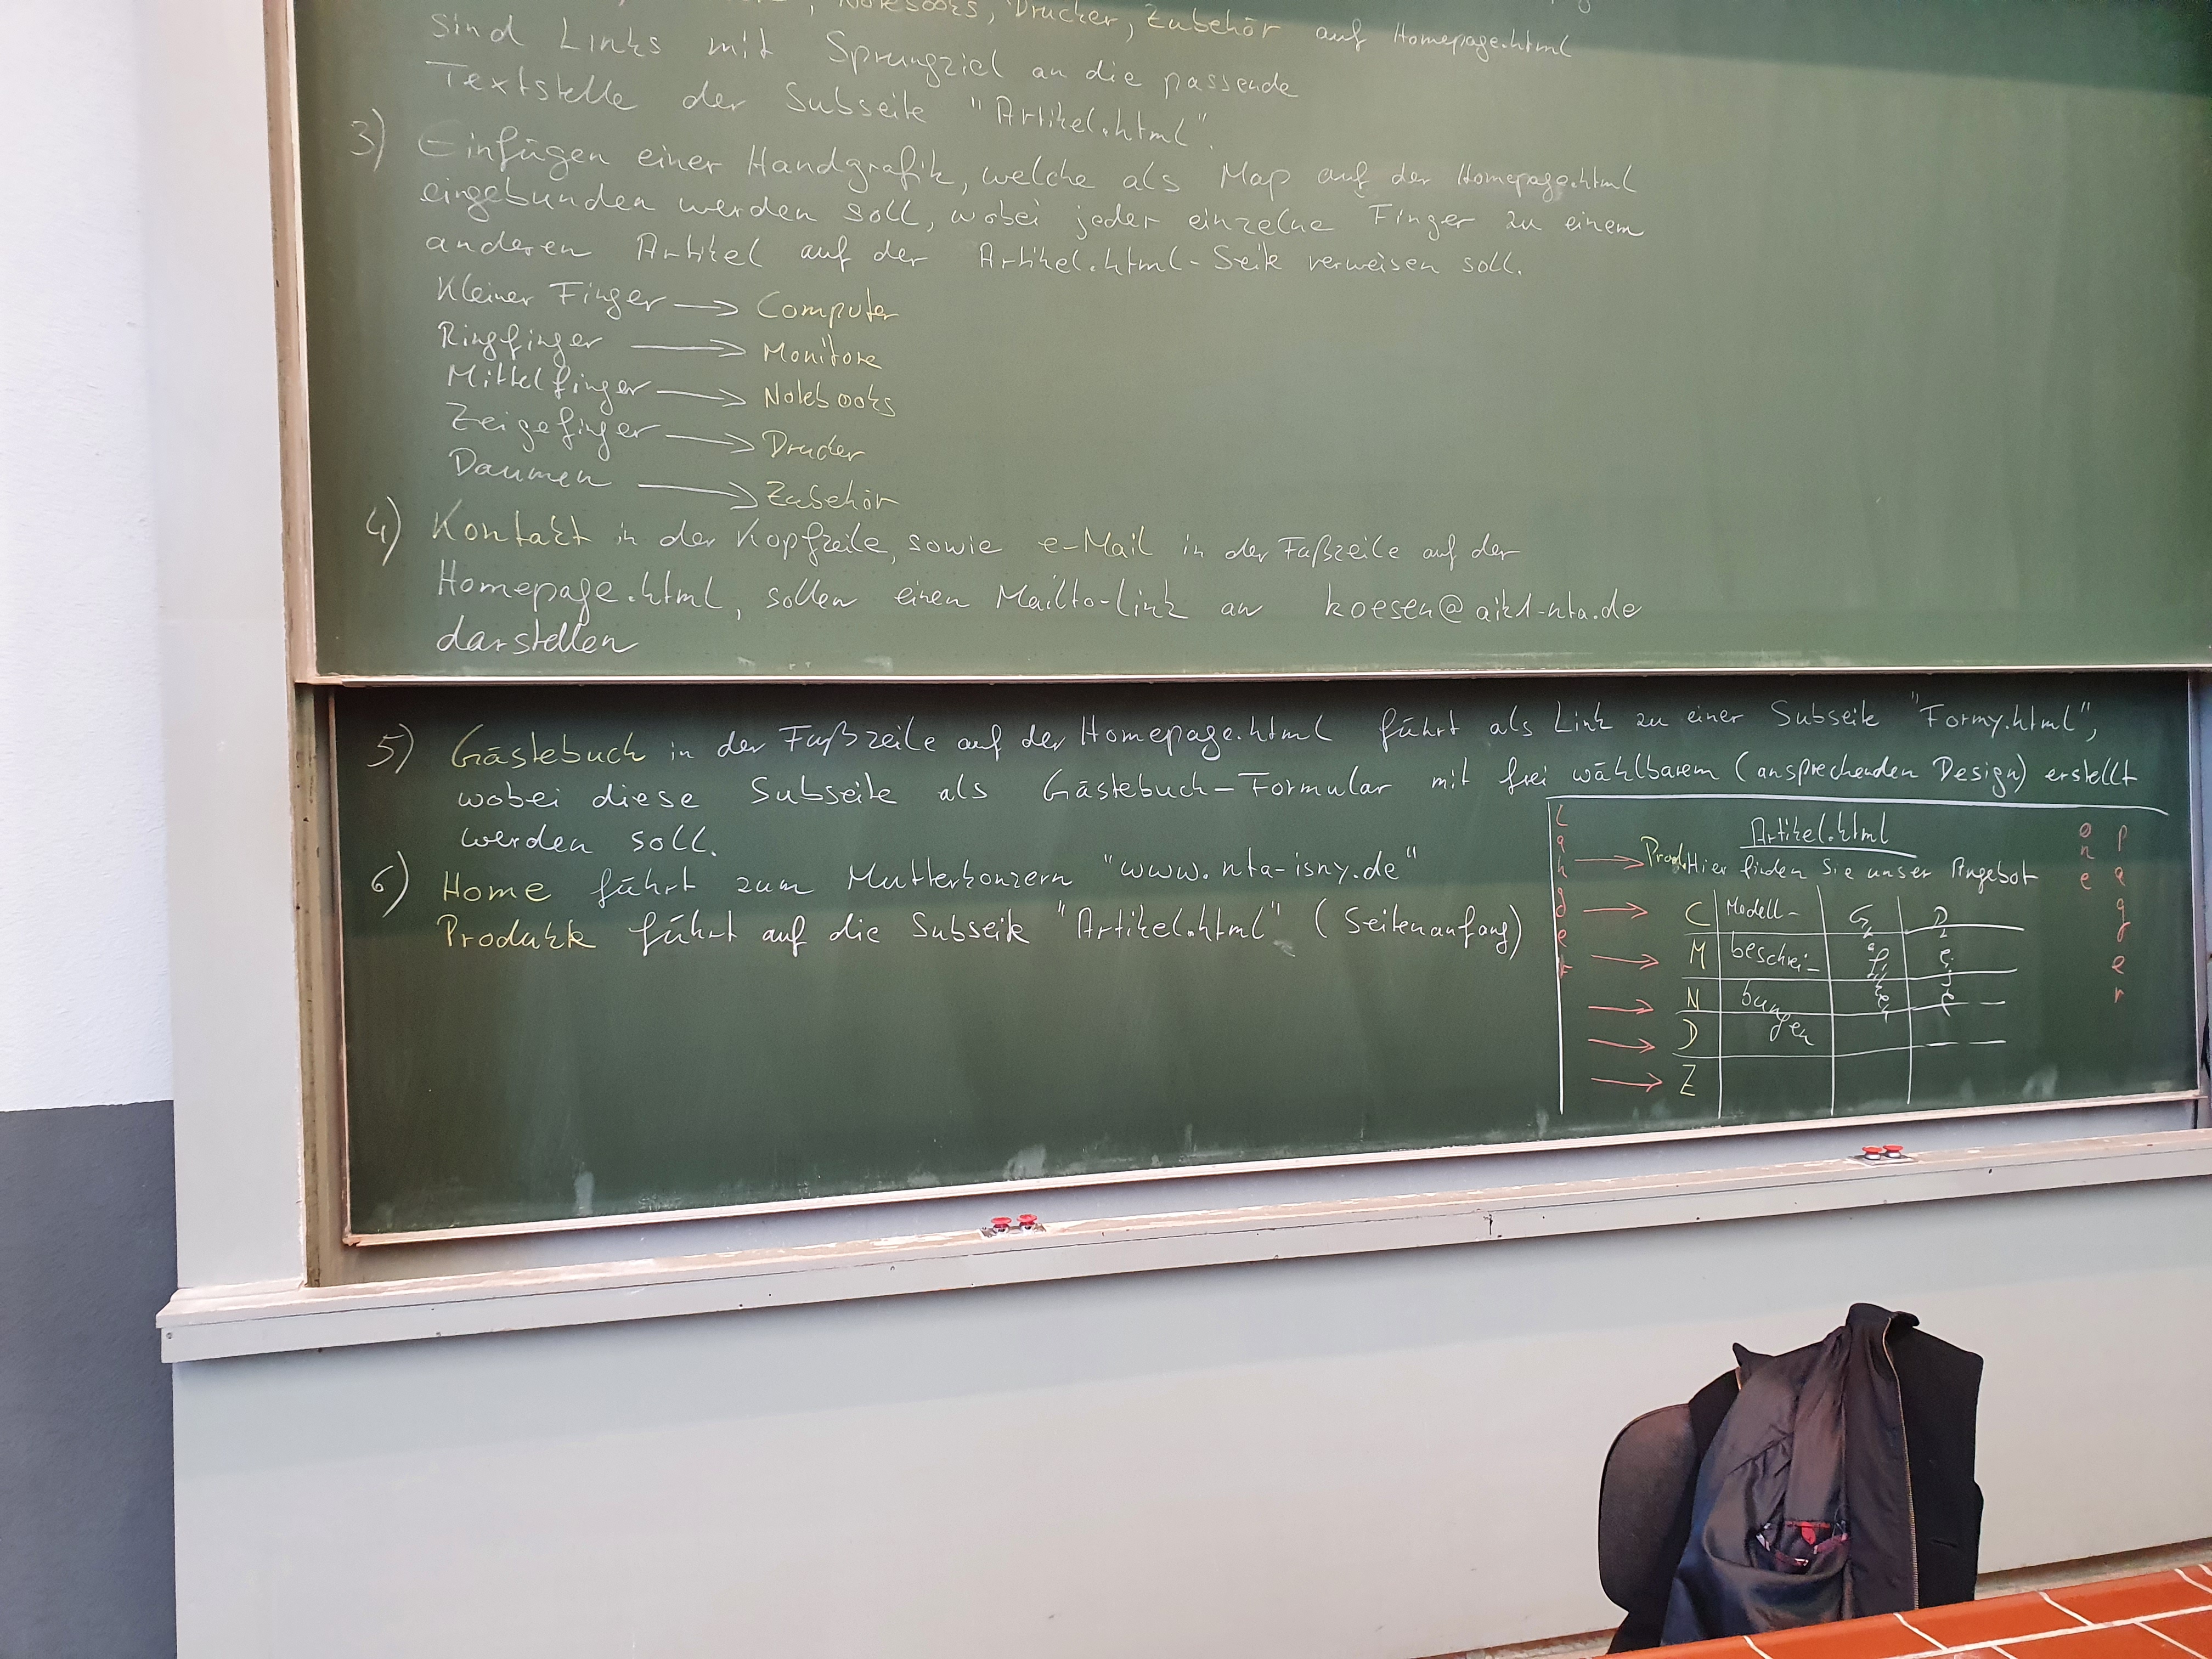 Notebooks, Drucker, Zubehör auf Homepage.html
sind Links mit Sprungziel an die passende
Textstelle der Subseite "Artikel.html".
3) Einfügen einer Handgrafik, welche als Map auf der Homepage.html
eingebunden werden soll, wobei jeder einzelne Finger zu einem
anderen Artikel auf der Artikel.html-Seite verweisen soll.
Kleiner Finger → Computer
Ringfinger → Monitore
Mittelfinger → Notebooks
Zeigefinger → Drucker
Daumen → Zubehör
4) Kontakt in der Kopfzeile, sowie e-Mail in der Fußzeile auf der
Homepage.html, sollen einen Mailto-link an koesen@aik1-nta.de
darstellen
5) Gästebuch in der Fußzeile auf der Homepage.html führt als Link zu einer Subseite "Formy.html",
wobei diese Subseite als Gästebuch-Formular mit frei wählbarem (ansprechenden Design) erstellt
werden soll.
6) Home führt zum Mutterkonzern "www.nta-isny.de"
Produkte führt auf die Subseite "Artikel.html" (Seitenanfang)
Artikel.html
→ Prod. Hier finden Sie unser Angebot
→ C Modell-
→ M beschrei-
→ N bungen
→ D
→ Z
Grafiken
Preise
one
pager